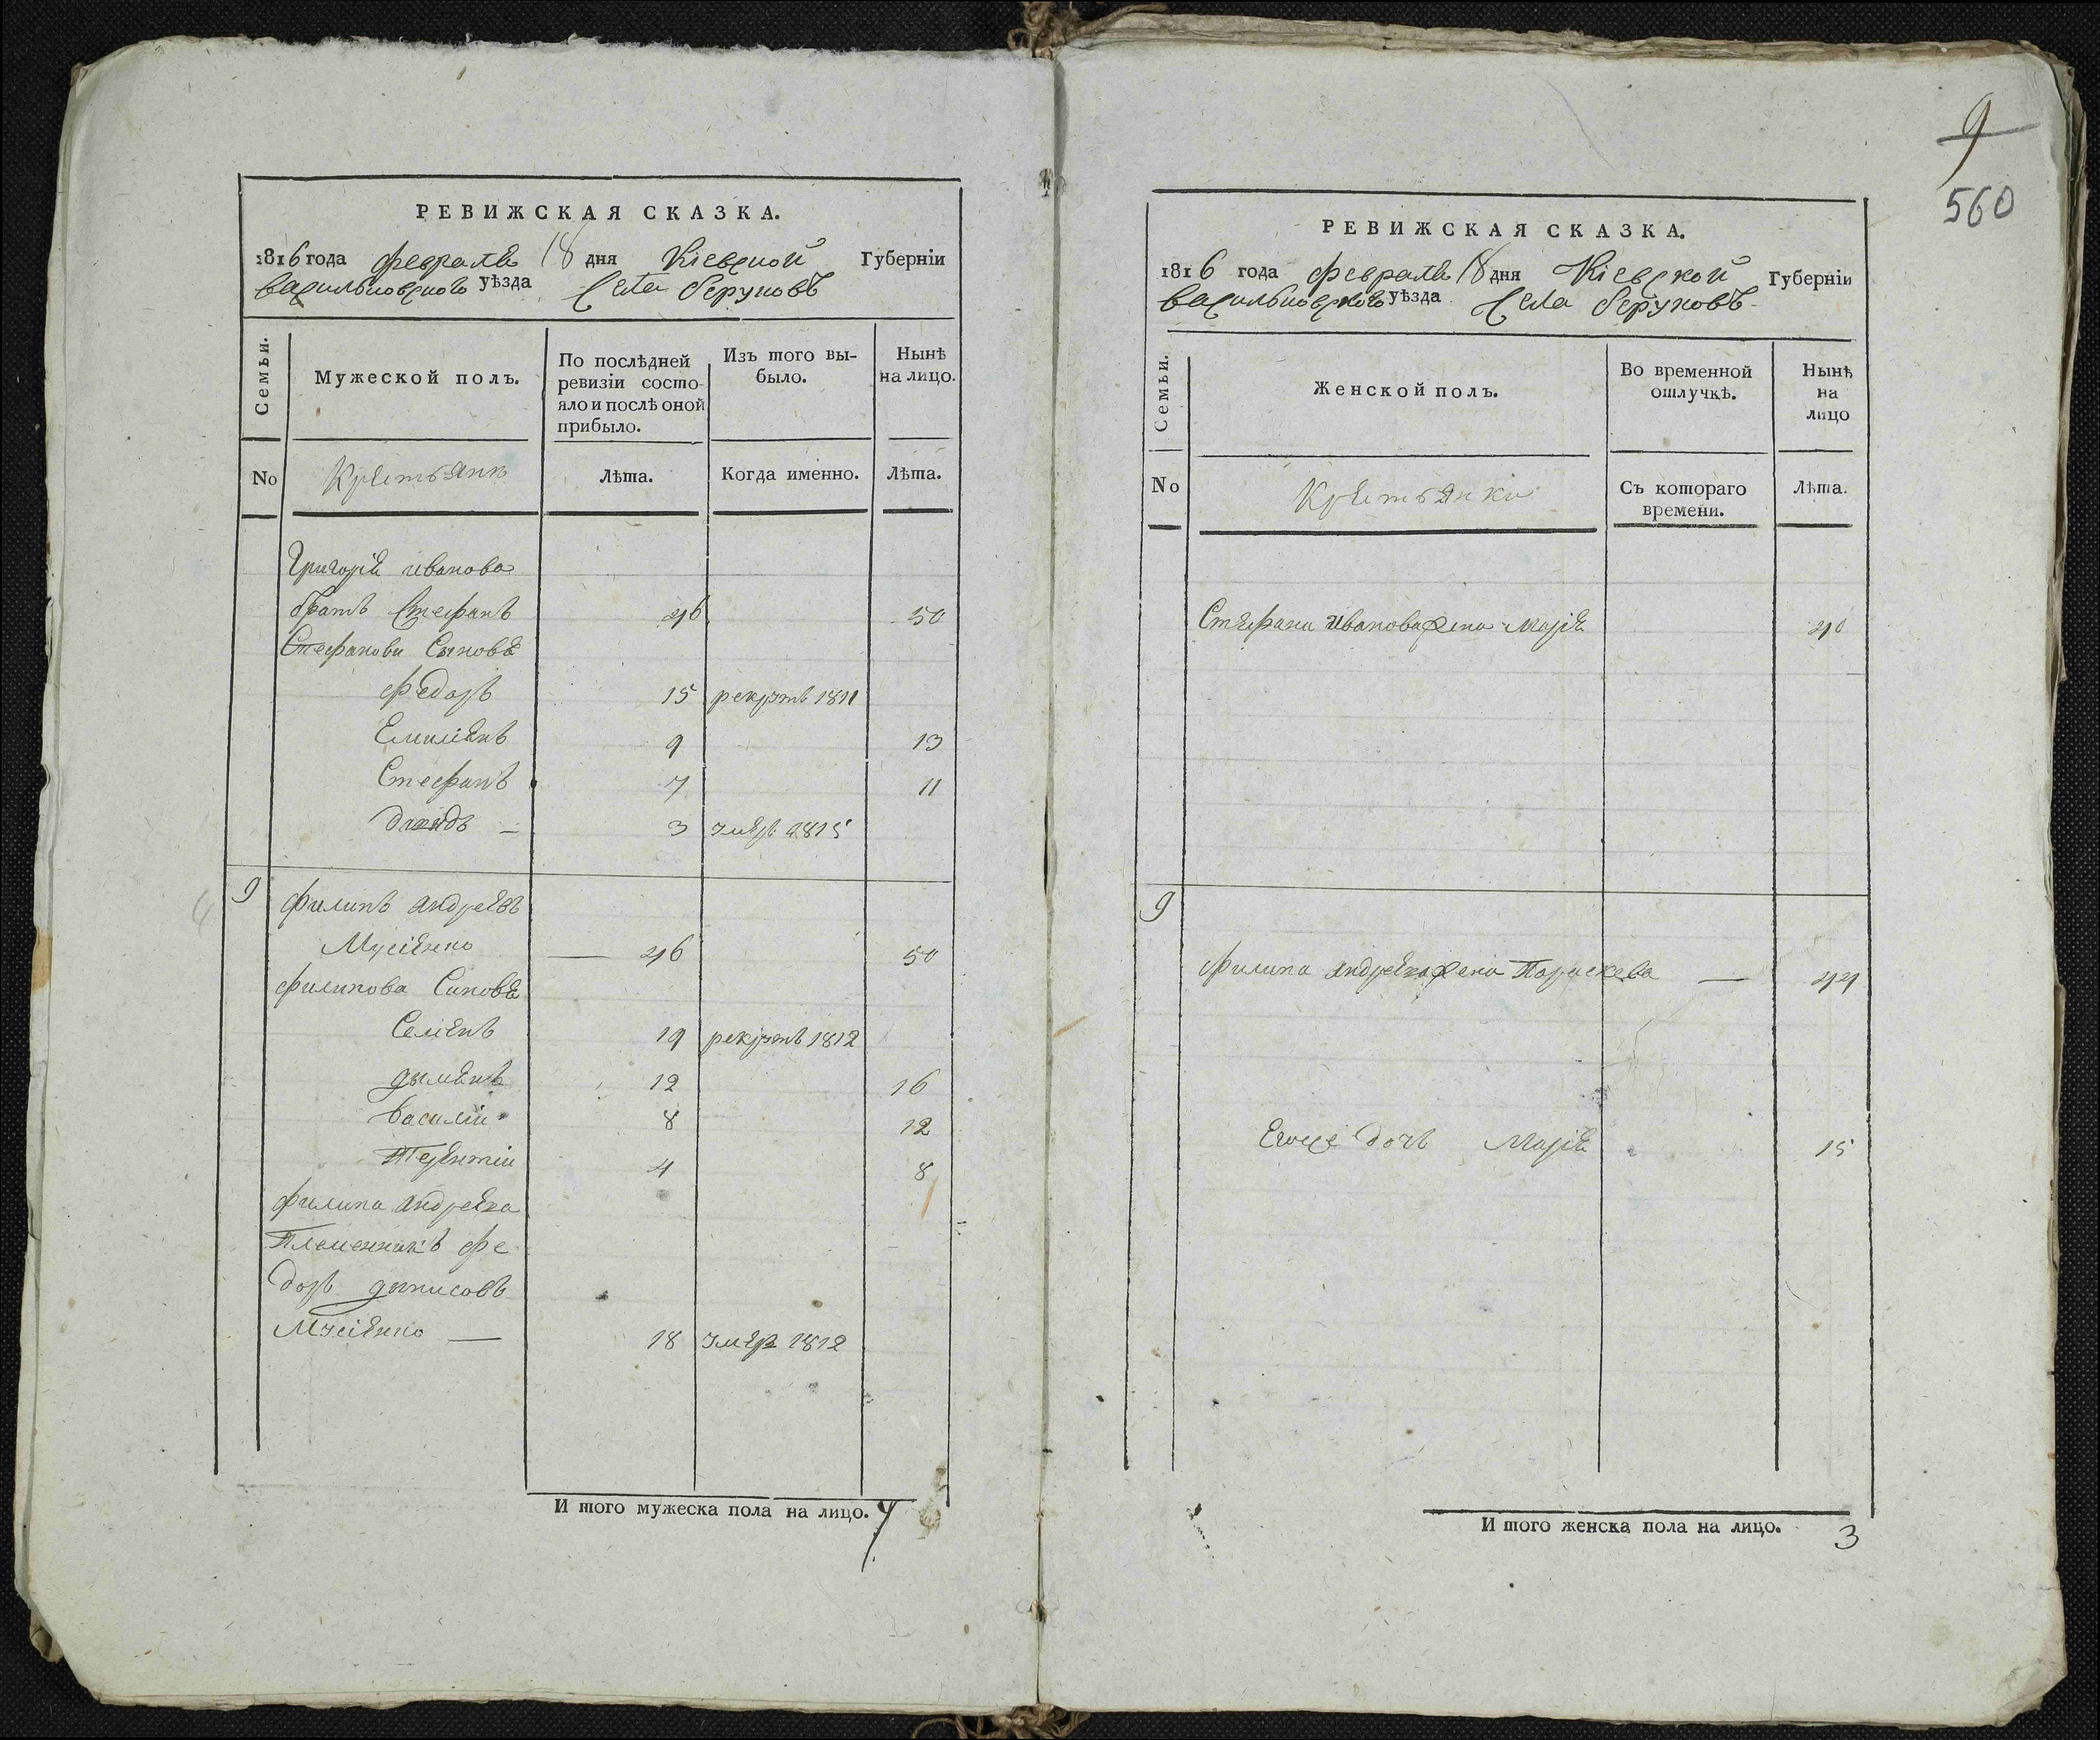 РЕВИЖСКАЯ СКАЗКА.
1816 года февраля 18 дня Кіевской Губерніи
васильковского уѣзда Села
Семьи.
Мужеской полъ.
По послѣдней ревизіи состо-
яло и послѣ оной
прибыло.
Изъ того вы-
было.
Нынѣ
на лицо.
No
Крестьяне
Лѣта.
Когда именно.
Лѣта.
Григорія иванова
братъ Стефанъ 46 50
Стефанови Сыновя
Федоръ 15 рекрутъ 1811
Емиліянъ 9 13
Стефанъ 7 11
— 3 умеръ 1815
9 Филипъ андреевъ
Мусіенко — 46 50
Филипова Синовя
Семенъ 19 рекрутъ 1812
дыменъ 12 16
Василіи 8 12
Терентіи 4 8
Филипа андреева
Племенникъ Фе
доръ дынисовъ
Мусіенко — 18 умер 1812
И того мужеска пола на лицо. 7
9
560
РЕВИЖСКАЯ СКАЗКА.
1816 года февраля 18 дня Кіевской Губерніи
васильковского уѣзда Села
Семьи.
Женской полъ.
Во временной
отлучкѣ.
Нынѣ
на
лицо
No
Крестьянки
Съ котораго
времени.
Лѣта.
Стефана иванова жена Марія 40
9
Филипа андреева жена Параскева — 44
Егоже дочь Марія 15
И того женска пола на лицо. 3